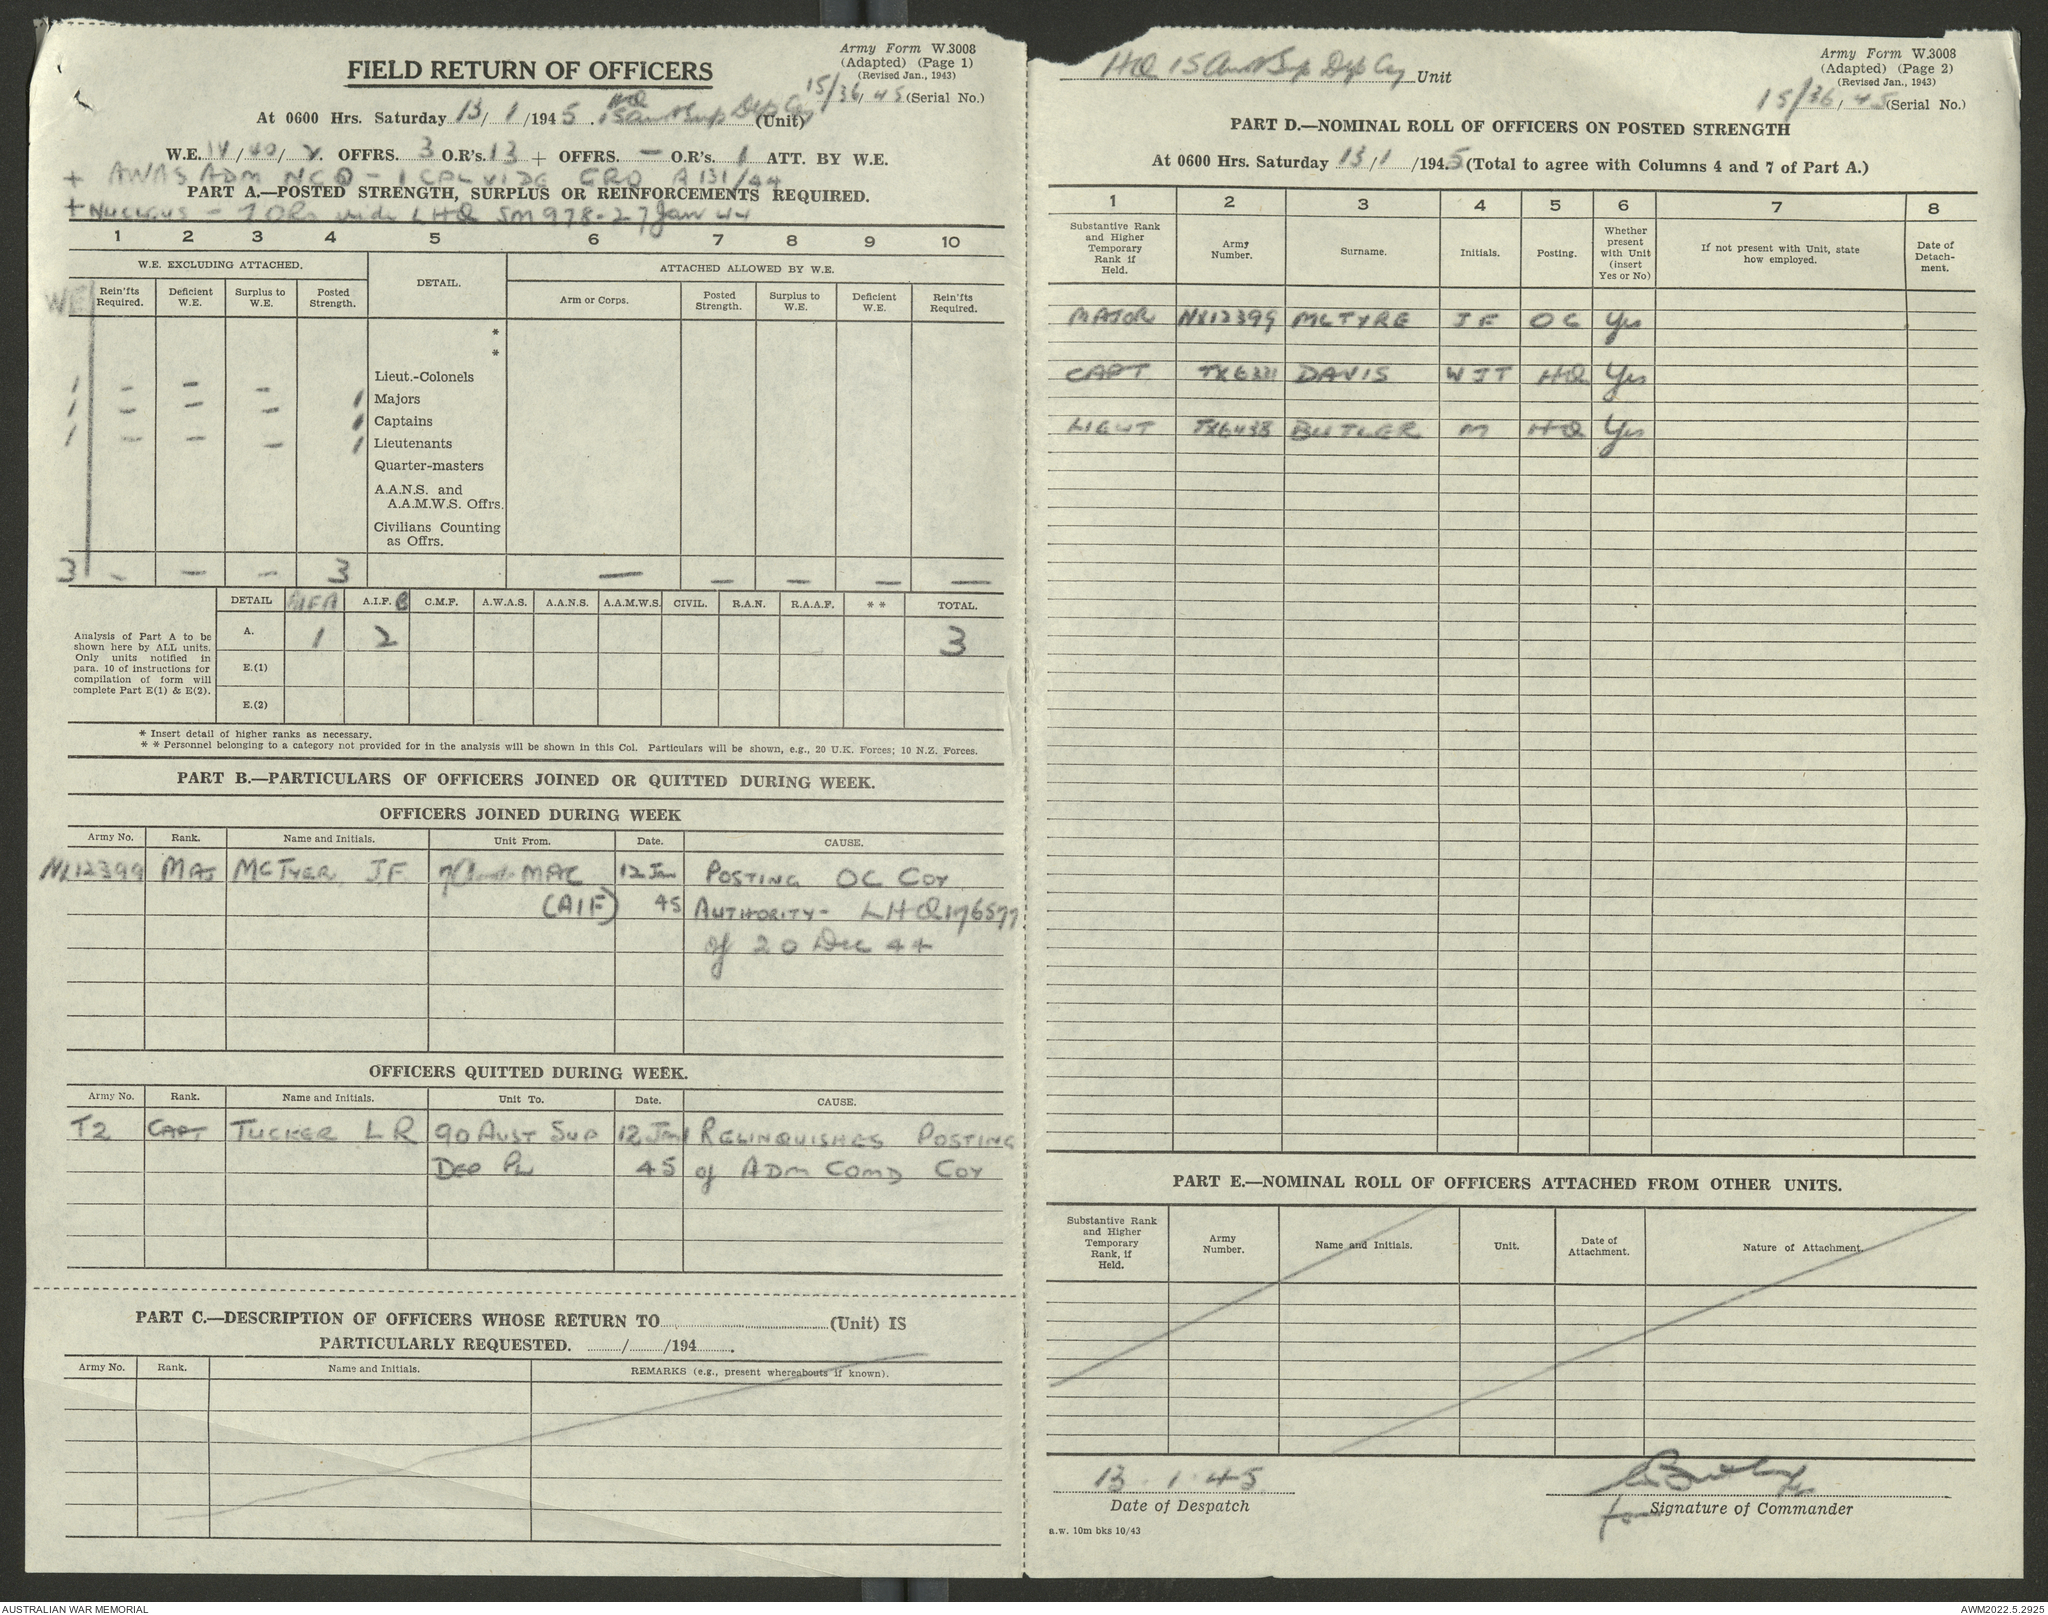 Army Form W.3008
(Adapted) (Page 1)
(Revised Jan., 1943)
FIELD RETURN OF OFFICERS
15/36/45 (Serial No.)
HQ
At 0600 Hrs. Saturday 13/1/1945. 15 Aust Sup Dep Coy (Unit)
W.E. 14/40/2. OFFRS. 3 O.R's. 13 + OFFRS. — O.R's. 1 ATT. BY W.E.
+ AWAS ADM NCO - 1 CPL VIDE GRO A 131/44
PART A.—POSTED STRENGTH, SURPLUS OR REINFORCEMENTS REQUIRED.
+ NUCLEUS - 7 ORs vide LHQ SM 978 - 27 Jan 44
1 2 3 4 5 6 7 8 9 10
W.E. EXCLUDING ATTACHED.
DETAIL.
ATTACHED ALLOWED BY W.E.
WE
Rein'fts Required.
Deficient W.E.
Surplus to W.E.
Posted Strength.
Arm or Corps.
Posted Strength.
Surplus to W.E.
Deficient W.E.
Rein'fts Required.
*
*
Lieut.-Colonels
1 – – – 1 Majors
1 – – – 1 Captains
1 – – – 1 Lieutenants
Quarter-masters
A.A.N.S. and
A.A.M.W.S. Offrs.
Civilians Counting
as Offrs.
3 – – – 3 — – – – —
DETAIL AIF A A.I.F. B C.M.F. A.W.A.S. A.A.N.S. A.A.M.W.S. CIVIL. R.A.N. R.A.A.F. * * TOTAL.
Analysis of Part A to be
shown here by ALL units.
Only units notified in
para. 10 of instructions for
compilation of form will
complete Part E(1) & E(2).
A. 1 2 3
E.(1)
E.(2)
* Insert detail of higher ranks as necessary.
* * Personnel belonging to a category not provided for in the analysis will be shown in this Col. Particulars will be shown, e.g., 20 U.K. Forces; 10 N.Z. Forces.
PART B.—PARTICULARS OF OFFICERS JOINED OR QUITTED DURING WEEK.
OFFICERS JOINED DURING WEEK
Army No. Rank. Name and Initials. Unit From. Date. CAUSE.
NX12399 MAJ MCTYER JF MAC 12 Jan POSTING OC COY
(AIF) 45 AUTHORITY - LHQ 176577
of 20 Dec 44
OFFICERS QUITTED DURING WEEK.
Army No. Rank. Name and Initials. Unit To. Date. CAUSE.
T2 CAPT TUCKER L R 90 AUST SUP 12 Jan RELINQUISHES POSTING
DEP PL 45 of ADM COMD COY
PART C.—DESCRIPTION OF OFFICERS WHOSE RETURN TO (Unit) IS
PARTICULARLY REQUESTED. / /194 .
Army No. Rank. Name and Initials. REMARKS (e.g., present whereabouts if known).
HQ 15 Aust Sup Dep Coy Unit
Army Form W.3008
(Adapted) (Page 2)
(Revised Jan., 1943)
15/36/45 (Serial No.)
PART D.—NOMINAL ROLL OF OFFICERS ON POSTED STRENGTH
At 0600 Hrs. Saturday 13/1/1945 (Total to agree with Columns 4 and 7 of Part A.)
1 2 3 4 5 6 7 8
Substantive Rank and Higher Temporary Rank if Held.
Army Number.
Surname.
Initials.
Posting.
Whether present with Unit (insert Yes or No)
If not present with Unit, state how employed.
Date of Detachment.
MAJOR NX12399 MCTYRE JF OC Yes
CAPT TX6321 DAVIS WJT HQ Yes
LIEUT TX6438 BUTLER M HQ Yes
PART E.—NOMINAL ROLL OF OFFICERS ATTACHED FROM OTHER UNITS.
Substantive Rank and Higher Temporary Rank, if Held.
Army Number.
Name and Initials.
Unit.
Date of Attachment.
Nature of Attachment.
13.1.45
Date of Despatch
for Signature of Commander
a.w. 10m bks 10/43
AUSTRALIAN WAR MEMORIAL
AWM2022.5.2925